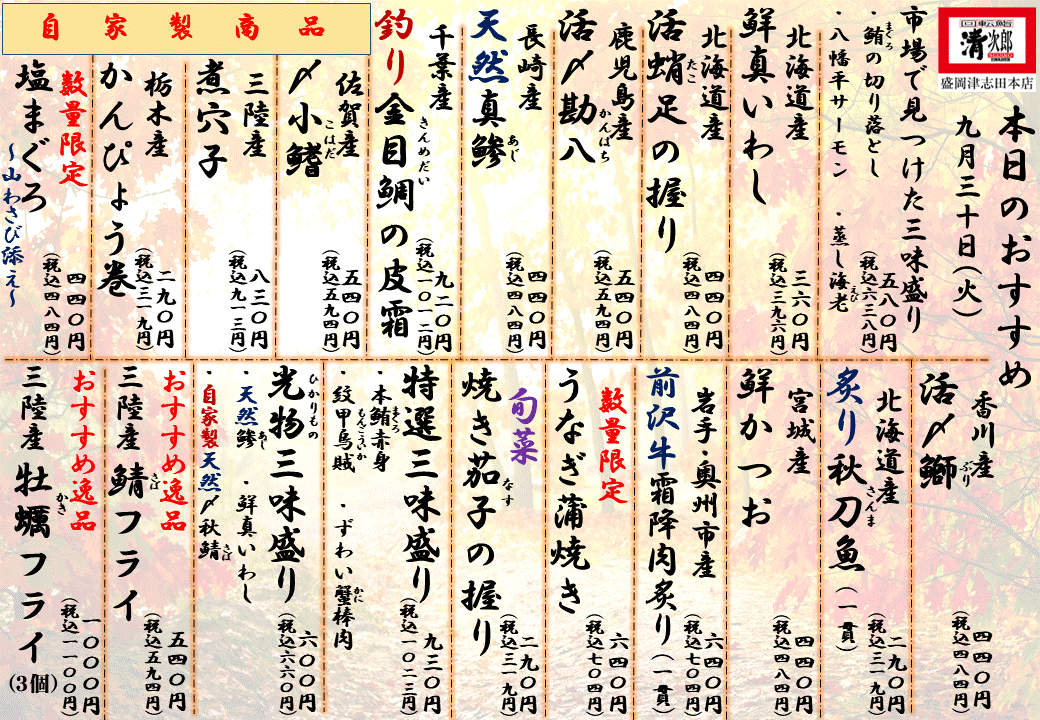 回転鮨
清次郎
盛岡津志田本店
本日のおすすめ
九月三十日(火)
市場で見つけた三味盛り
・鮪の切り落とし
まぐろ
・八幡平サーモン ・蒸し海老
えび
五八〇円
(税込六三八円)
北海道産
鮮真いわし
三六〇円
(税込三九六円)
北海道産
活蛸足の握り
たこ
四四〇円
(税込四八四円)
鹿児島産
活〆勘八
かんぱち
五四〇円
(税込五九四円)
長崎産
天然真鯵
あじ
四四〇円
(税込四八四円)
千葉産
釣り金目鯛の皮霜
きんめだい
九二〇円
(税込一〇一二円)
自家製商品
佐賀産
〆小鰭
こはだ
五四〇円
(税込五九四円)
三陸産
煮穴子
八三〇円
(税込九一三円)
栃木産
かんぴょう巻
二九〇円
(税込三一九円)
数量限定
塩まぐろ
~山わさび添え~
四四〇円
(税込四八四円)
香川産
活〆鰤
ぶり
四四〇円
(税込四八四円)
北海道産
炙り秋刀魚(一貫)
さんま
二九〇円
(税込三一九円)
宮城産
鮮かつお
四四〇円
(税込四八四円)
岩手・奥州市産
前沢牛霜降肉炙り(一貫)
六四〇円
(税込七〇四円)
数量限定
うなぎ蒲焼き
六四〇円
(税込七〇四円)
旬菜
焼き茄子の握り
なす
二九〇円
(税込三一九円)
特選三味盛り
・本鮪赤身
まぐろ
・紋甲烏賊 ・ずわい蟹棒肉
もんこういか
かに
九三〇円
(税込一〇二三円)
光物三味盛り
ひかりもの
・天然鯵 ・鮮真いわし
あじ
・自家製天然〆秋鯖
さば
六〇〇円
(税込六六〇円)
おすすめ逸品
三陸産 鯖フライ
さば
五四〇円
(税込五九四円)
おすすめ逸品
三陸産 牡蠣フライ(3個)
かき
一〇〇〇円
(税込一一〇〇円)